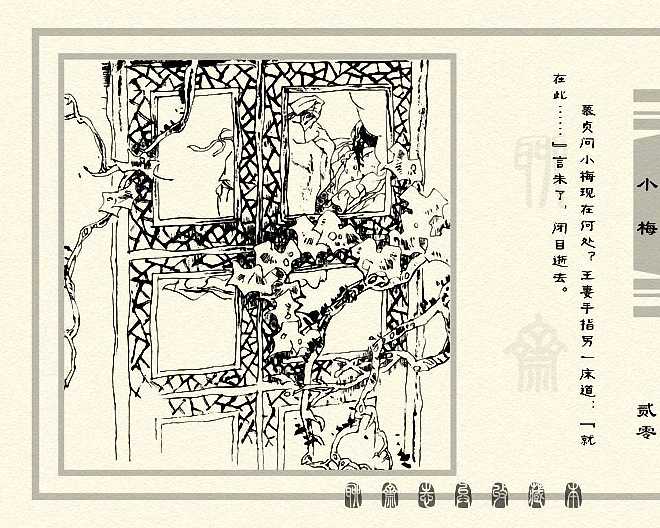 小梅
慕贞问小梅现在何处？王妻手指另一床道：『就
在此……』言未了，闭目逝去。
贰零